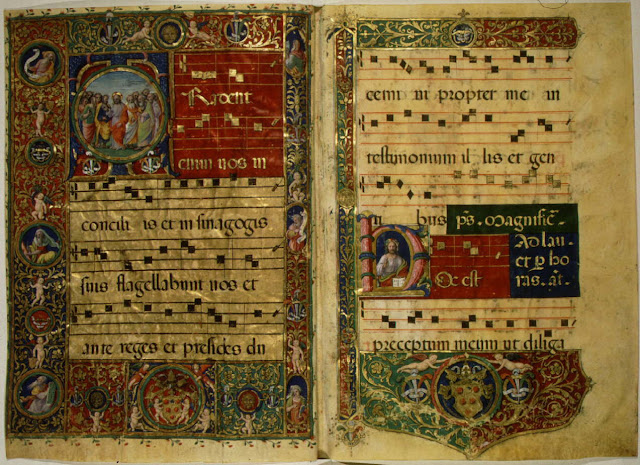 Tradent
enim uos in
concili is et in sinagogis
suis flagellabunt uos et
ante reges et presides du
cemi ni propter me in
testimonium il lis et gen
ti bus ps. Magnific.
Ad lau-
et p ho
ras. at.
Hoc est
preceptum meum ut diliga